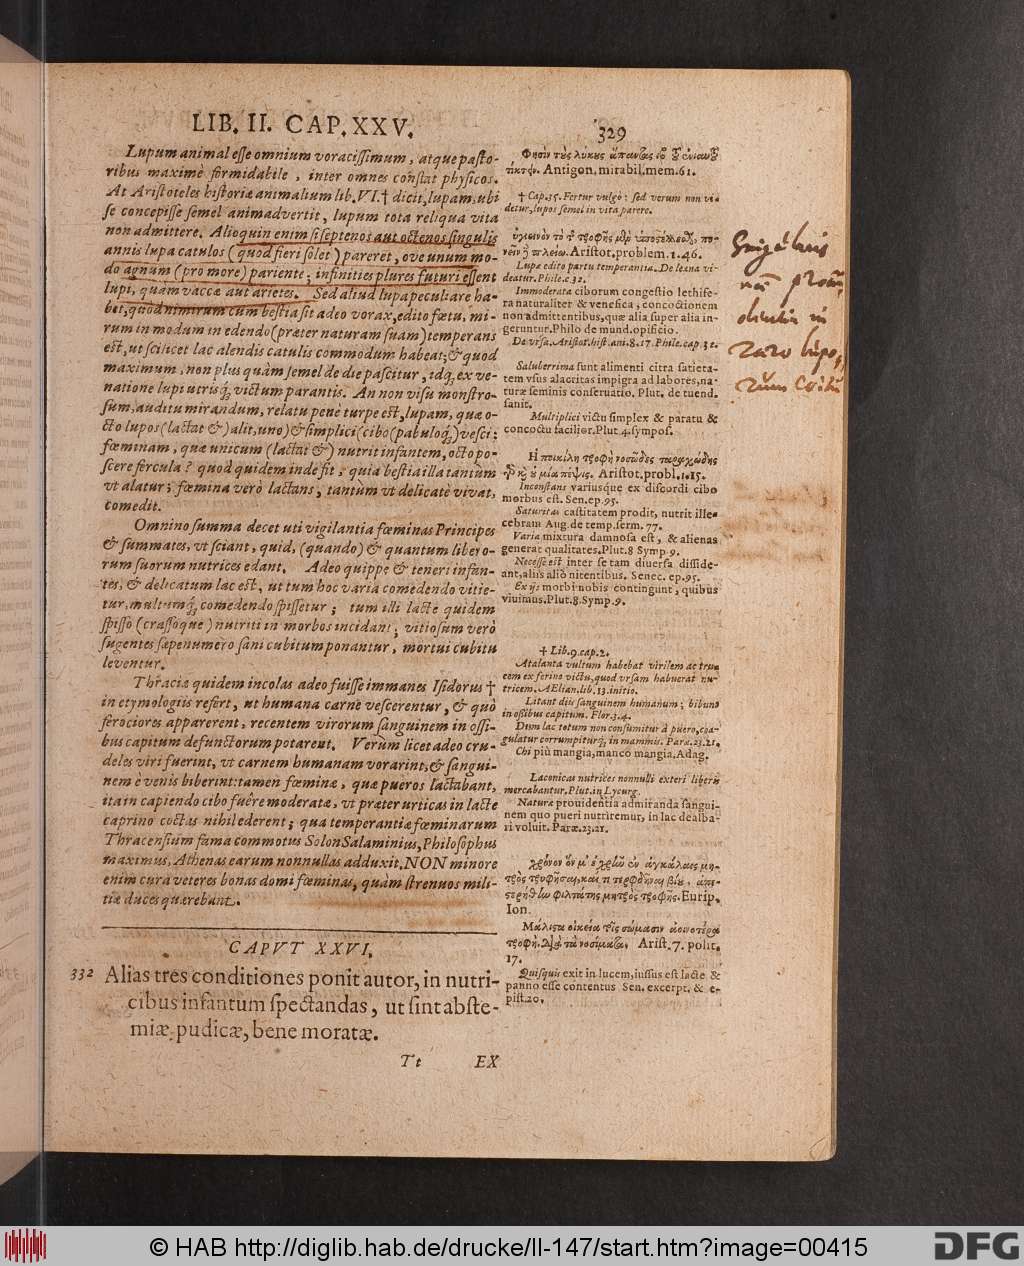 LIB. II. CAP. XXV. 329
Lupum animal esse omnium voracissimum, atque pasto-
ribus maximè formidabile, inter omnes constat physicos.
At Aristoteles historiæ animalium lib. VI.† dicit, lupam, ubi
se concepisse semel animadvertit, lupum tota reliqua vita
non admittere. Alioquin enim si septenos aut octenos singulis
annis lupa catulos (quod fieri solet) pareret, ove unum mo-
do agnum (pro more) pariente; infinities plures futuri essent
lupi, quàm vaccæ aut arietes. Sed aliud lupa peculiare ha-
bet, quod nimirum cum bestia sit adeo vorax, edito fœtu, mi-
rum in modum in edendo (præter naturam suam) temperans
est, ut scilicet lac alendis catulis commodum habeat; & quod
maximum, non plus quàm semel de die pascitur, idq; ex ve-
natione lupi utrisq; victum parantis. An non visu monstro-
sum, auditu mirandum, relatu pene turpe est, lupam, quæ o-
cto lupos (lactat &) alit, uno) & simplici (cibo (pabuloq;) vesci;
fœminam, quæ unicum (lactat &) nutrit infantem, octo po-
scere fercula? quod quidem inde fit, quia bestia illa tantùm
vt alatur; fœmina verò lactans, tantùm vt delicatè vivat,
comedit.
Omnino summa decet uti vigilantia fœminas Principes
& summates, vt sciant, quid, (quando) & quantum libero-
rum suorum nutrices edant. Adeo quippe & teneri infan-
tes, & delicatum lac est, ut tum hoc varia comedendo vitie-
tur, multumq; comedendo spissetur; tum illi lacte quidem
spisso (crassoque) nutriti in morbos incidant; vitiosum verò
sugentes sæpenumero sani cubitum ponantur, mortui cubitu
leventur.
Thraciæ quidem incolas adeo fuisse immanes Isidorus †
in etymologiis refert, ut humana carne vescerentur, & quò
ferociores apparerent, recentem virorum sanguinem in ossi-
bus capitum defunctorum potarent. Verum licet adeo cru-
deles viri fuerint, vt carnem humanam vorarint, & sangui-
nem è venis biberint: tamen fœminæ, quæ pueros lactabant,
ita in capiendo cibo fuêre moderatæ, vt præter urticas in lacte
caprino coctas nihil ederent; qua temperantiæ fœminarum
Thracensium fama commotus Solon Salaminius, Philosophus
maximus, Athenas earum nonnullas adduxit. NON minore
enim cura veteres bonas domi fœminas, quàm strenuos mili-
tiæ duces quærebant.
CAPVT XXVI.
332 Alias tres conditiones ponit autor, in nutri-
cibus infantum spectandas, ut sint abste-
miæ, pudicæ, bene moratæ.
Tt EX
Φησὶν τὺς λύκυς ἅπαντας
τίκτειν. Antigon. mirabil. mem. 61.
† Cap. 35. Fertur vulgò: sed verum non vi-
detur, lupos semel in vita parere.
Aristot. problem. 1. 46.
Lupæ edito partu temperantia. De leæna vi-
deatur. Phile. c. 32.
Immoderata ciborum congestio lethife-
ra naturaliter & venefica, concoctionem
non admittentibus, quæ alia super alia in-
geruntur. Philo de mund. opificio.
De vrsa. Aristot. hist. ani. 8. 17. Phile. cap. 31.
Saluberrima sunt alimenti citra satieta-
tem vsus alacritas impigra ad labores, na-
turæ seminis conseruatio. Plut. de tuend.
sanit.
Multiplici victu simplex & paratu &
concoctu facilior. Plut. 4. sympos.
Η ποικίλη τροφὴ νοσώδης ταραχώδης
Aristot. probl. 1. 15.
Inconstans variusque ex discordi cibo
morbus est. Sen. ep. 95.
Saturitas castitatem prodit, nutrit ille-
cebram Aug. de temp. serm. 77.
Varia mixtura damnosa est, & alienas
generat qualitates. Plut. 8 Symp. 9.
Necesse est inter se tam diversa disside-
ant, aliis aliò nitentibus. Senec. ep. 95.
Ex ijs morbi nobis contingunt, quibus
viuimus. Plut. 8. Symp. 9.
† Lib. 9. cap. 2.
Atalanta vultum habebat virilem ac tru-
cem ex ferino victu, quod vrsam habuerat nu-
tricem. AElian. lib. 13. initio.
Litant diis sanguinem humanum; bibunt
in ossibus capitum. Flor. 3. 4.
Dum lac totum non consumitur à puero, coa-
gulatur corrumpiturq; in mammis. Paræ. 23. 21.
Chi più mangia, manco mangia, Adag.
Laconicas nutrices nonnulli exteri liberis
mercabantur. Plut. in Lycurg.
Naturæ prouidentia admiranda sangui-
nem quo pueri nutriremur, in lac dealba-
ri voluit. Paræ. 23. 21.
χρόνον ὃν μ' ἐχρῶ ἐν ἀγκάλαις μη-
τρὸς τρυφῆσαι, καί τι τερφθῆναι βίυ, ἀπε-
στερήθω φιλτάτης μητρὸς τροφῆς. Eurip.
Ion.
Μάλιστα οἰκεία τοῖς σώμασιν
Arist. 7. polit.
17.
Quisquis exit in lucem, iussus est lacte &
panno esse contentus Sen. excerpt. & e-
pist. 20.
in
raro lupo,
rum coitu